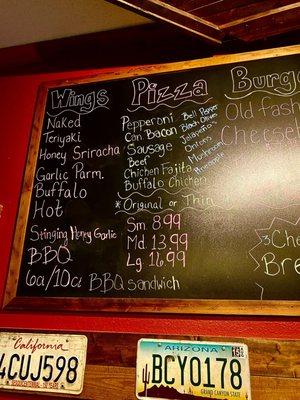 Wings
Naked
Teriyaki
Honey Sriracha
Garlic Parm.
Buffalo
Hot
Stinging Honey Garlic
BBQ
6a/10a BBQ Sandwich
Pizza
Pepperoni
Can Bacon
Sausage
Beef
Chicken Fajita
Buffalo Chicken
Bell Peper
Black Olive
Jalapeño
Onion
Mushroom
Pineapple
*Original or Thin
Sm 8.99
Md 13.99
Lg 16.99
Burg
Old fash
Cheese
Che
Bre
California
4CUJ598
ARIZONA
BCY0178
GRAND CANYON STATE